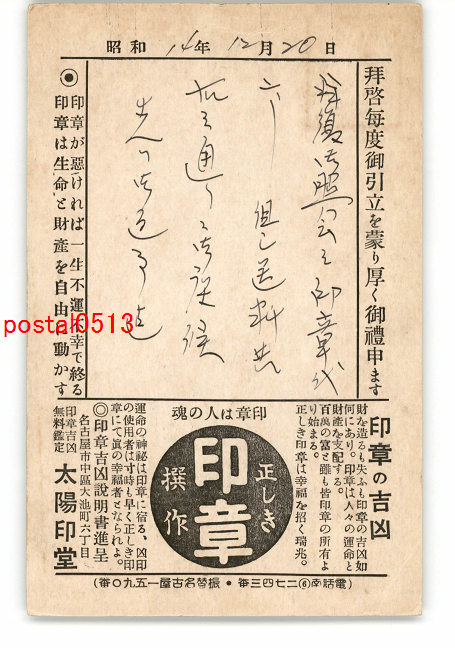 昭和 14年 12月 20日
拝啓毎度御引立を蒙り厚く御禮申ます
拝復御照会之印章代
六、一 但し送料共
右之通りニ御座候
印章が惡ければ一生不運不幸で終る
印章は生命と財産を自由に動かす
postal0513
印章の吉凶
財を造るも失ふも印章の吉凶如
何にあり。印章は人々の運命と
財產を支配する。
百萬の富と雖も皆印章の所有よ
り始まる。
正しき印章は幸福を招く瑞兆。
印章は人の魂
正しき
印章
撰作
運命の神秘は印章に宿る、凶印
の使用者は寸時も早く正しき印
章にて眞の幸福者となられよ。
◎印章吉凶說明書進呈
名古屋市中區大池町六丁目
印章吉凶
無料鑑定
太陽印堂
(電話南⑥二七四三番・振替名古屋一五九〇番)